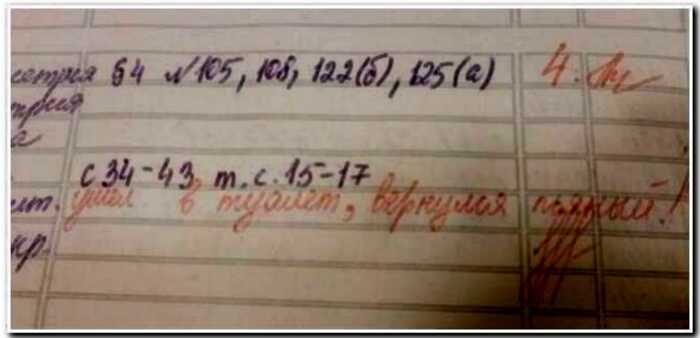 етрия §4 №105, 108, 122(б), 125(а) 4.
с 34-43 т.с. 15-17
ушел в туалет, вернулся пьяный!